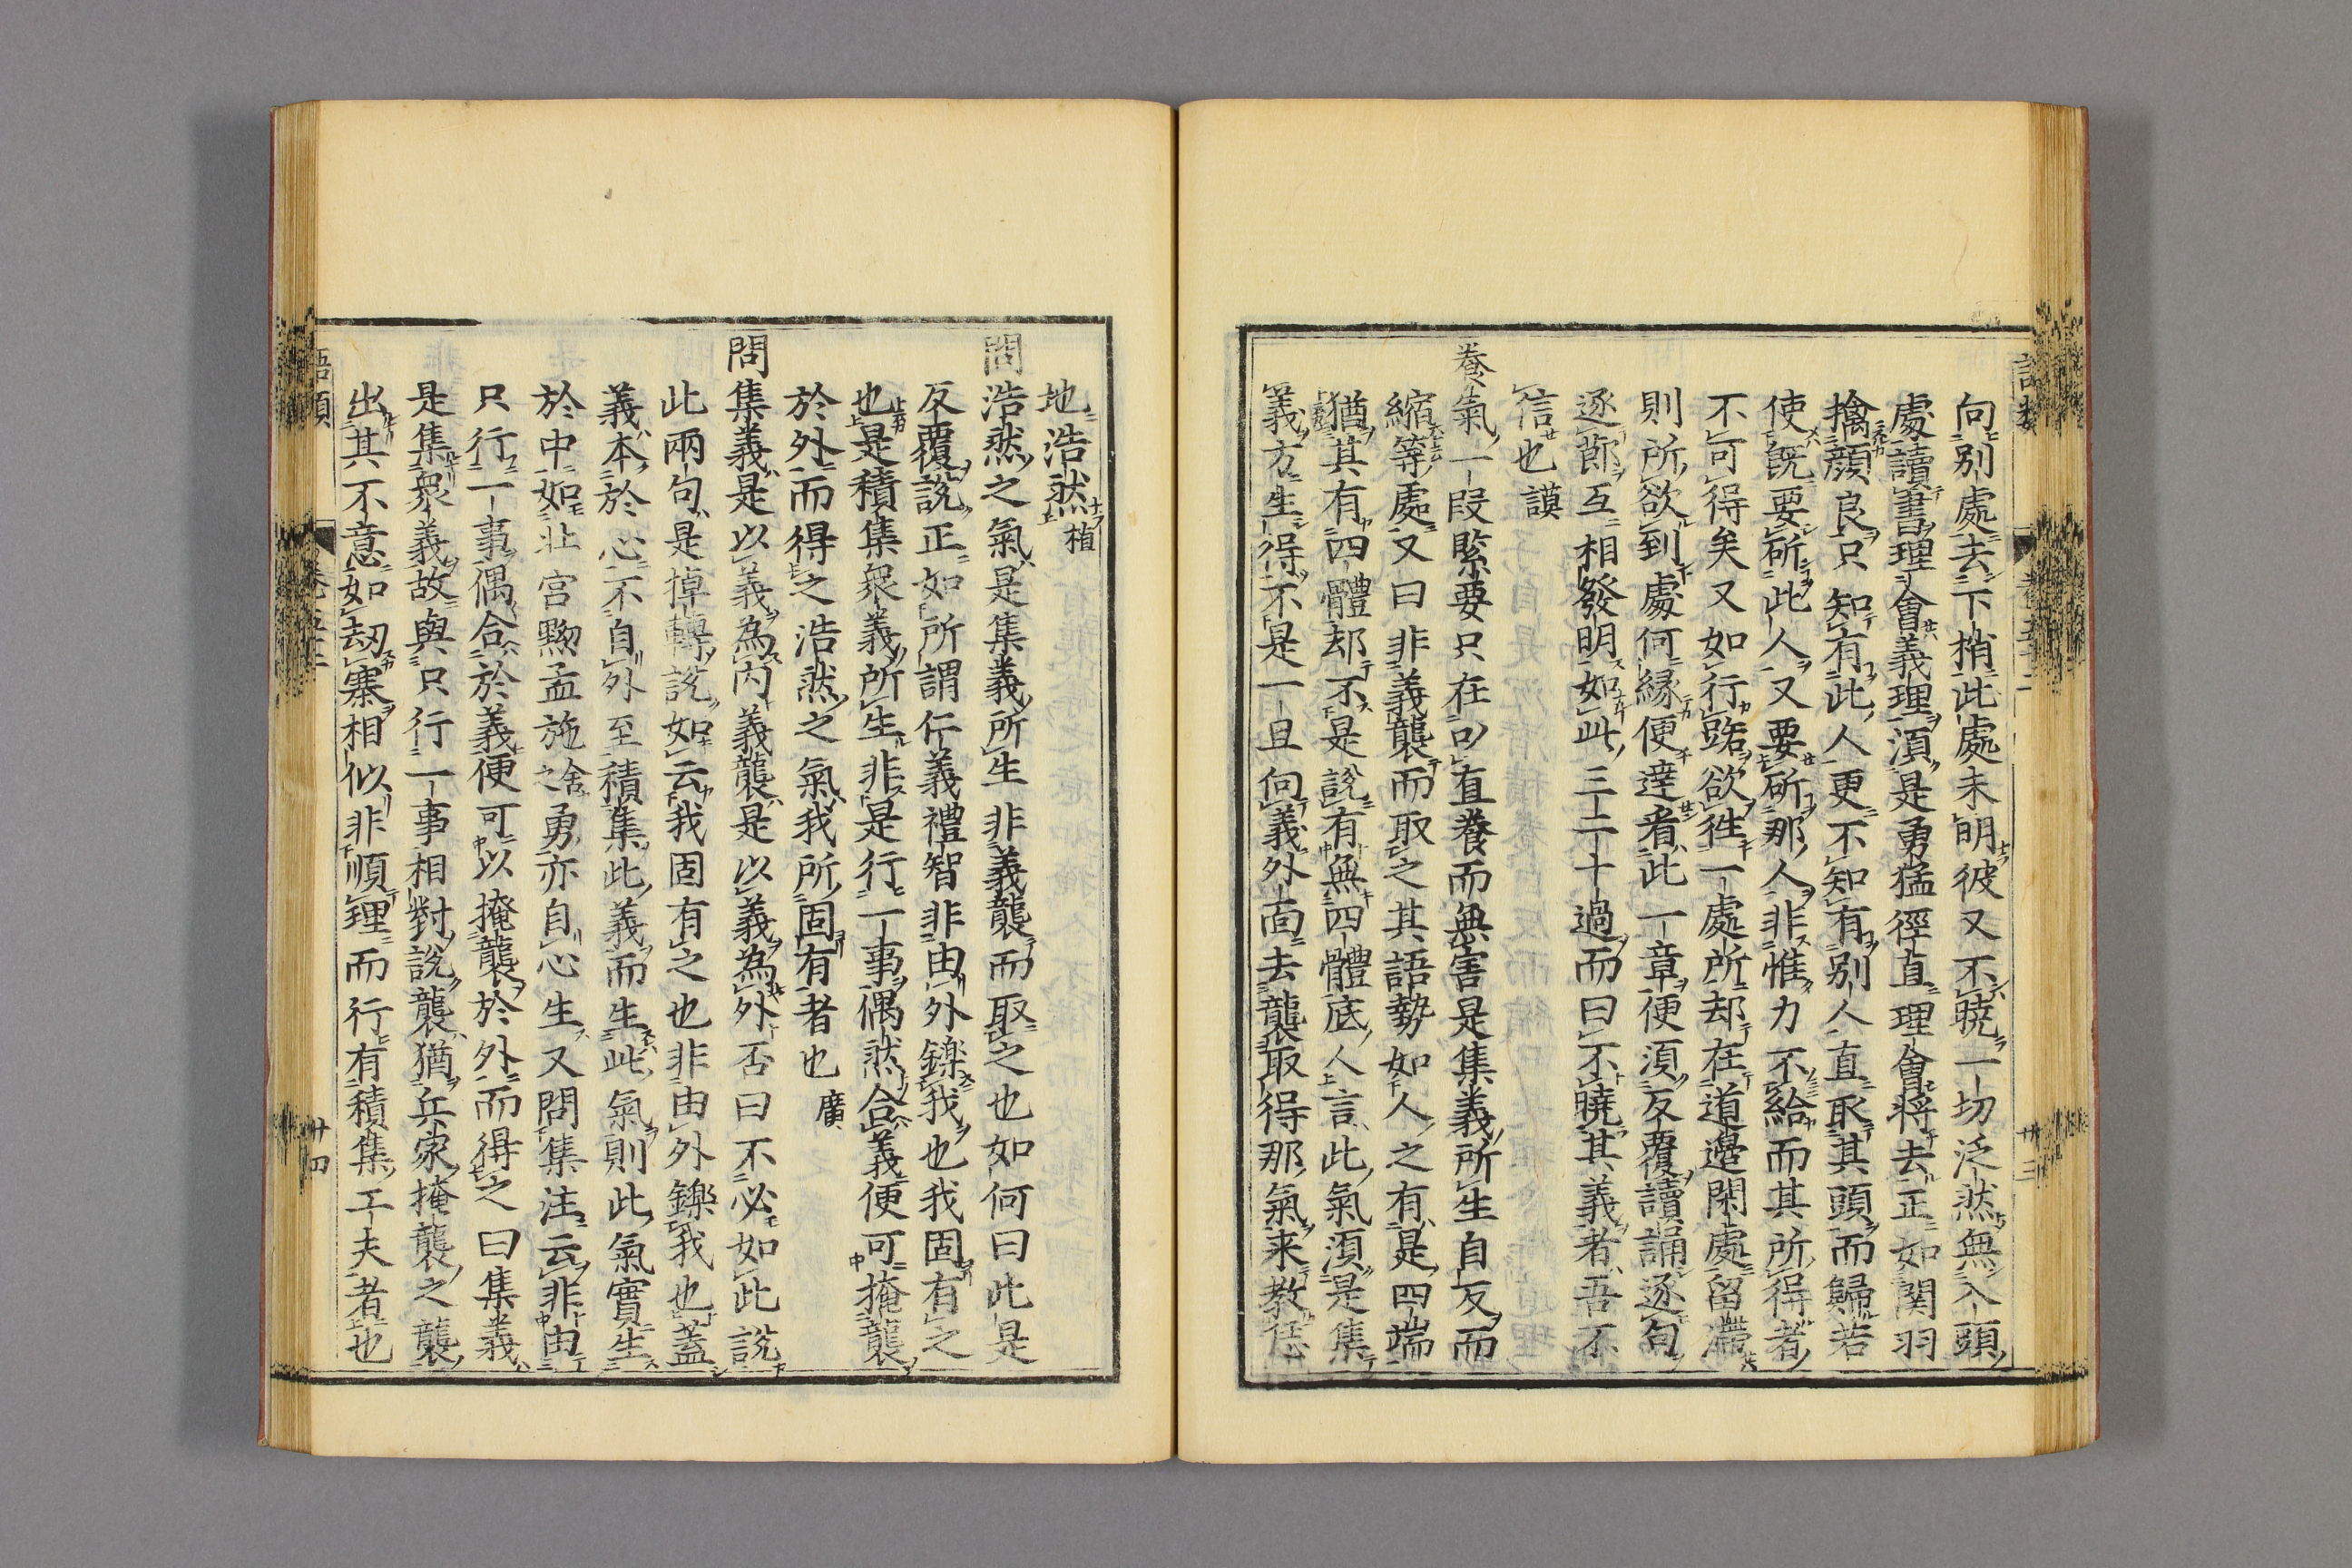 向別處去下梢此處未明彼又不曉一切泛然無入頭
處讀書理會義理湏是勇猛徑直理會將去正如関羽
擒顔良只知有此人更不知有別人直取其頭而歸若
使既要斫此人又要斫那人非惟力不給而其所得者
不可得矣又如行路欲徃一處所却在道邊閑處留滯
則所欲到處何縁便達看此一章便湏反覆讀誦逐句
逐節互相發明如此三二十過而曰不曉其義者吾不
信也 謨
養氣一段緊要只在以直養而無害是集義所生自反而
縮等處又曰非義襲而取之其語勢如人之有是四端
猶其有四體却不是說有無四體底人言此氣湏是集
義方生得不是一旦向義外面去襲取得那氣来教恁
地浩然 植
問浩然之氣是集義所生非義襲而取之也如何曰此是
反覆說正如所謂仁義禮智非由外鑠我也我固有之
也是積集衆義所生非是行一事偶然合義便可掩襲
於外而得之浩然之氣我所固有者也 廣
問集義是以義為內義襲是以義為外否曰不必如此說
此兩句是掉轉說如云我固有之也非由外鑠我也蓋
義本於心不自外至積集此義而生此氣則此氣實生
於中如北宮黝孟施舍之勇亦自心生又問集注云非由
只行一事偶合於義便可以掩襲於外而得之曰集義
是集衆義故與只行一事相對說襲猶兵家掩襲之襲
出其不意如刼寨相似非順理而行有積集工夫者也
語類
廿四